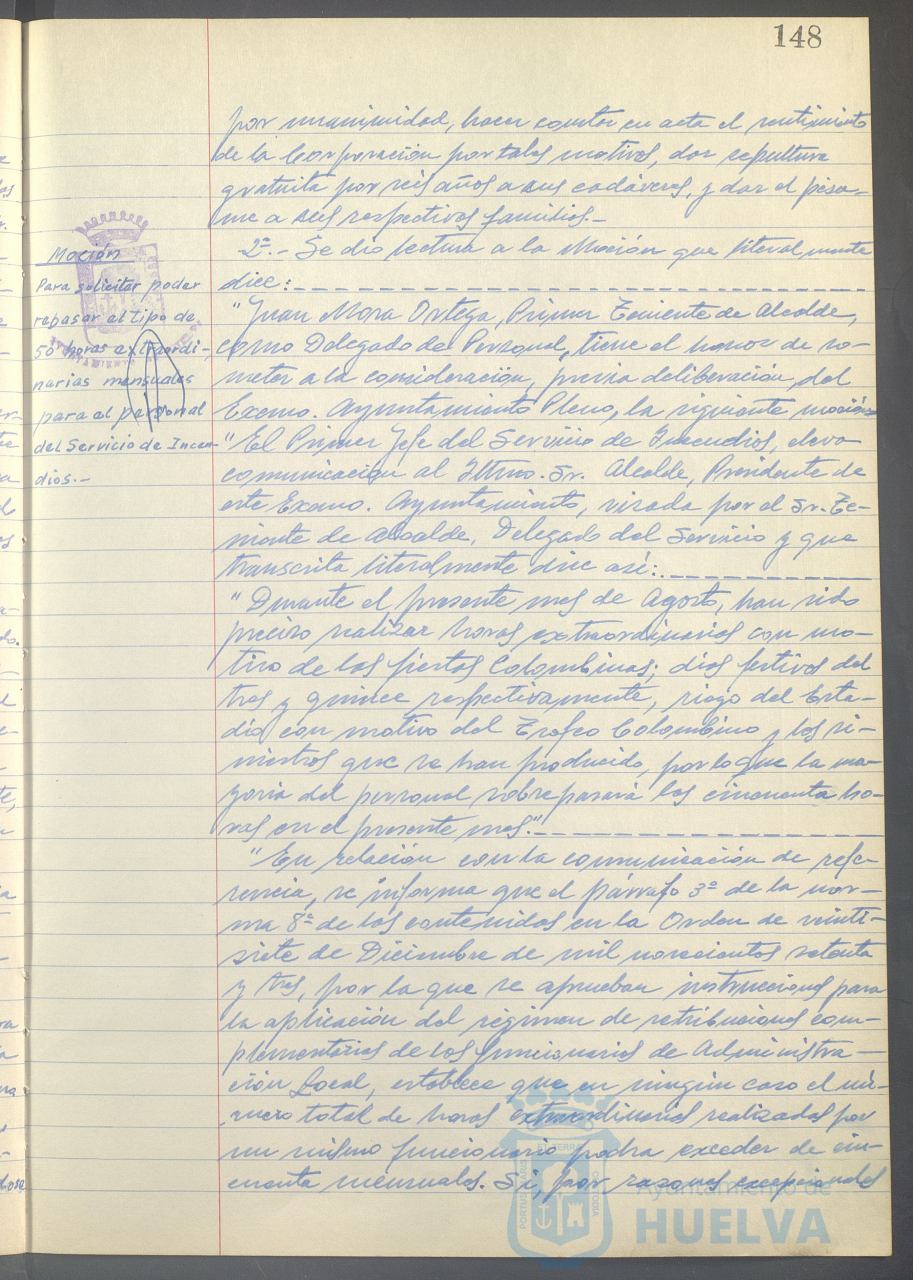 148
por unanimidad, hacer constar en acta el sentimiento
de la Corporación por tales motivos, dar sepultura
gratuita por seis años a sus cadáveres, y dar el pésa-
me a sus respectivas familias.-
Moción
Para solicitar poder
rebasar el tipo de
50 horas extraordi-
narias mensuales
para el personal
del Servicio de Incen-
dios.-
2º.- Se dio lectura a la Moción que literalmente
dice:
"Juan Mora Ortega, Primer Teniente de Alcalde,
como Delegado de Personal, tiene el honor de so-
meter a la consideración, previa deliberación, del
Excmo. Ayuntamiento Pleno, la siguiente moción
"El Primer Jefe del Servicio de Incendios, eleva
comunicación al Iltmo. Sr. Alcalde, Presidente de
este Excmo. Ayuntamiento, visada por el Sr. Te-
niente de Alcalde, Delegado del Servicio y que
transcrita literalmente dice así:
"Durante el presente mes de Agosto, han sido
preciso realizar horas extraordinarias con mo-
tivo de las fiestas Colombinas; días festivos del
tres y quince respectivamente, riego del Esta-
dio con motivo del Trofeo Colombino y los si-
niestros que se han producido, por lo que la ma-
yoria del personal sobrepasará las cincuenta ho-
ras en el presente mes."
"En relación con la comunicación de refe-
rencia, se informa que el párrafo 3º de la nor-
ma 8ª de las contenidas en la Orden de veinti-
siete de Diciembre de mil novecientos setenta
y tres, por la que se aprueban instrucciones para
la aplicación del régimen de retribuciones com-
plementarias de los funcionarios de Administra-
ción Local, establece que en ningún caso el nú-
mero total de horas extraordinarias realizadas por
un mismo funcionario podrá exceder de cin-
cuenta mensuales. Si, por razones excepcionales
Ayuntamiento de
HUELVA